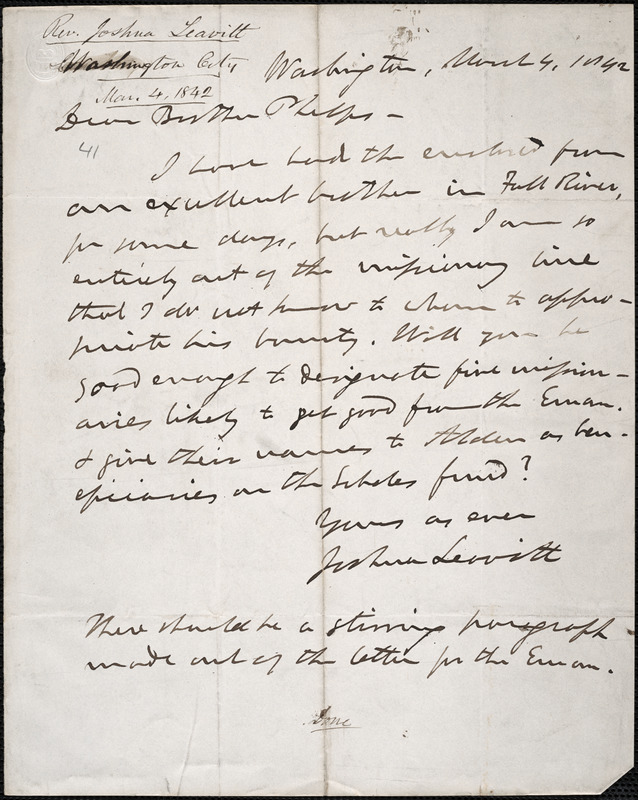 Rev. Joshua Leavitt
Washington City
Mar. 4, 1842
Washington, March 4, 1842
Dear Brother Phelps—
41
I have had the enclosed from
an excellent brother in Fall River,
for some days, but really I am so
entirely out of the missionary line
that I do not know to whom to appro-
priate his bounty. Will you be
good enough to designate five mission-
aries likely to get good from the Eman.
& give their names to Alden as ben-
eficiaries on the Scholes fund?
Yours as ever
Joshua Leavitt
There should be a stirring paragraph
made out of the letter for the Eman.
Done